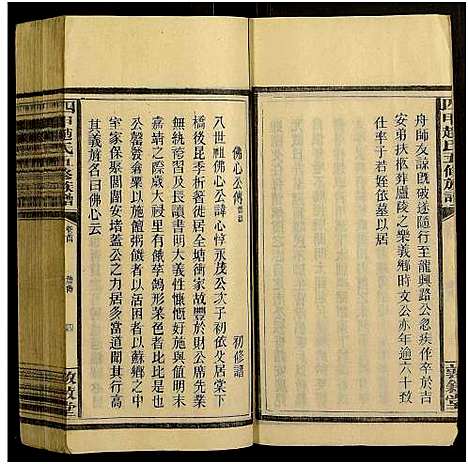 四甲趙氏五修族譜
舟師友諒旣敗遂隨行至龍興路公忽疾作卒於吉
安弟扶柩葬廬陵之樂義鄉時文公亦年逾六十致
仕率子若姪依墓以居
敦敘堂
佛心公傳
初修譜
八世祖佛心公諱心惇永茂公次子初依父居棠下
橋後毘季析箸徙居全塘衝家故豐於財公席先業
無統袴習及長讀書明大義性慷慨好施與值明末
嘉靖之際歲大祲里有餓莩鴿形菜色者比比是也
公罄倉粟以施饘粥餓者以活困者以蘇鄉之中
室家保聚閭閻安堵蓋公之力居多當道聞其行高
其義旌名曰佛心云
四甲趙氏五修族譜
卷首
四
敦敘堂